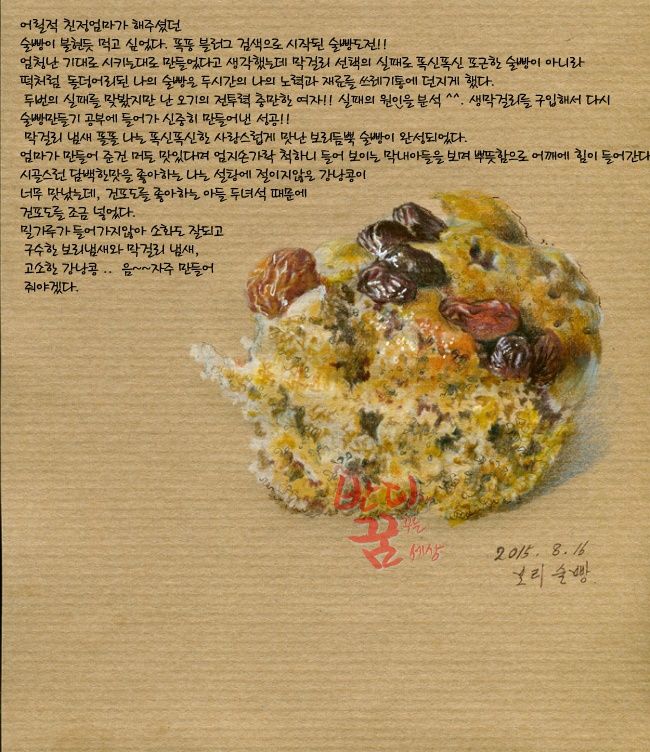 어릴적 친정엄마가 해주셨던
술빵이 불현듯 먹고 싶었다. 폭풍 블러그 검색으로 시작된 술빵도전!!
엄청난 기대로 시키는대로 만들었다고 생각했는데 막걸리 선택의 실패로 폭신폭신 포근한 술빵이 아니라
떡처럼 들더어리된 나의 술빵은 두시간의 나의 노력과 재료를 쓰레기통에 던지게 했다.
두번의 실패를 맛봤지만 난 오기의 전투력 충만한 여자!! 실패의 원인을 분석 ^^. 생막걸리를 구입해서 다시
술빵만들기 공부에 들어가 신중히 만들어낸 성공!!
막걸리 냄새 폴폴 나는 폭신폭신한 사랑스럽게 맛난 보리듬뿍 술빵이 완서되었다.
엄마가 만들어 준건 머든 맛있다며 엄지손가락 척하니 들어 보이는 막내아들을 보며 뿌듯함으로 어깨에 힘이 들어간다
시골스런 담백한맛을 좋아하는 나는 설탕에 절이지않은 강낭콩이
너무 맛났는데, 건포도를 좋아하는 아들 두녀석 때문에
건포도를 조금 넣었다.
밀가루가 들어가지않아 소화도 잘되고
구수한 보리냄새와 막걸리 냄새,
고소한 강낭콩 .. 음~~자주 만들어
줘야겠다.
반디
꿈꾸는
세상
2015. 8. 16
보리 술빵.